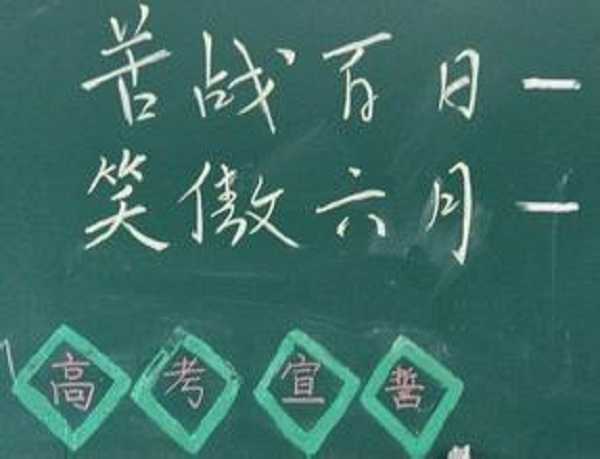 苦战百日一
笑傲六月一
高考宣誓